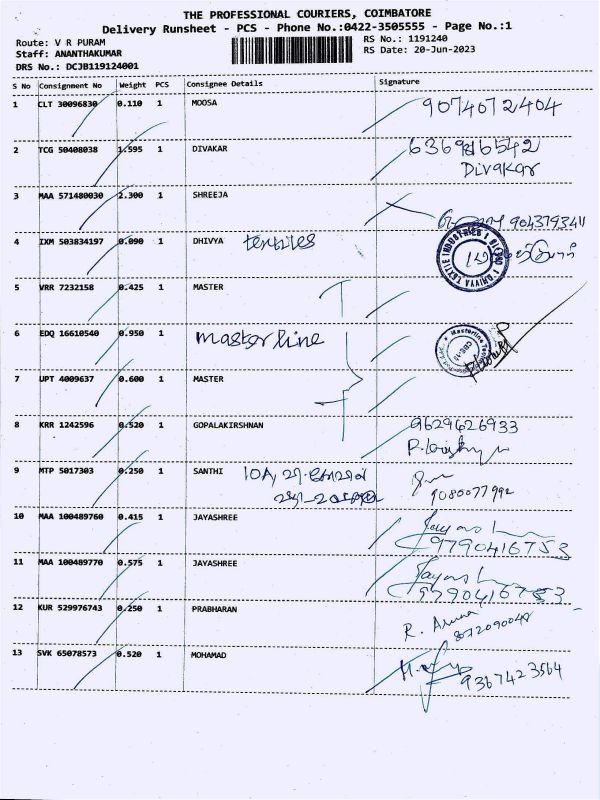 THE PROFESSIONAL COURIERS, COIMBATORE
Delivery Runsheet - PCS - Phone No.:0422-3505555 - Page No.:1
Route: V R PURAM RS No.: 1191240
Staff: ANANTHAKUMAR RS Date: 20-Jun-2023
DRS No.: DCJB119124001
S No Consignment No Weight PCS Consignee Details Signature
1 CLT 30096830 0.110 1 MOOSA 9074072404
2 TCG 50408038 1.595 1 DIVAKAR 6369816542
Divakar
3 MAA 571480030 2.300 1 SHREEJA 9043793411
4 IXM 503834197 0.090 1 DHIVYA textiles
DHIVYA TEXTILE INDUSTRIES
5 VRR 7232158 0.425 1 MASTER
6 EDQ 16610540 0.950 1 masterline
7 UPT 4009637 0.600 1 MASTER
8 KRR 1242596 0.520 1 GOPALAKIRSHNAN 9629426933
9 MTP 5017303 0.250 1 SANTHI 10A,
9080077992
10 MAA 100489760 0.415 1 JAYASHREE Jayash
9790416753
11 MAA 100489770 0.575 1 JAYASHREE Jayash
9790416753
12 KUR 529976743 0.250 1 PRABHARAN R. Aruna
13 SVK 65078573 0.520 1 MOHAMAD 9367423564